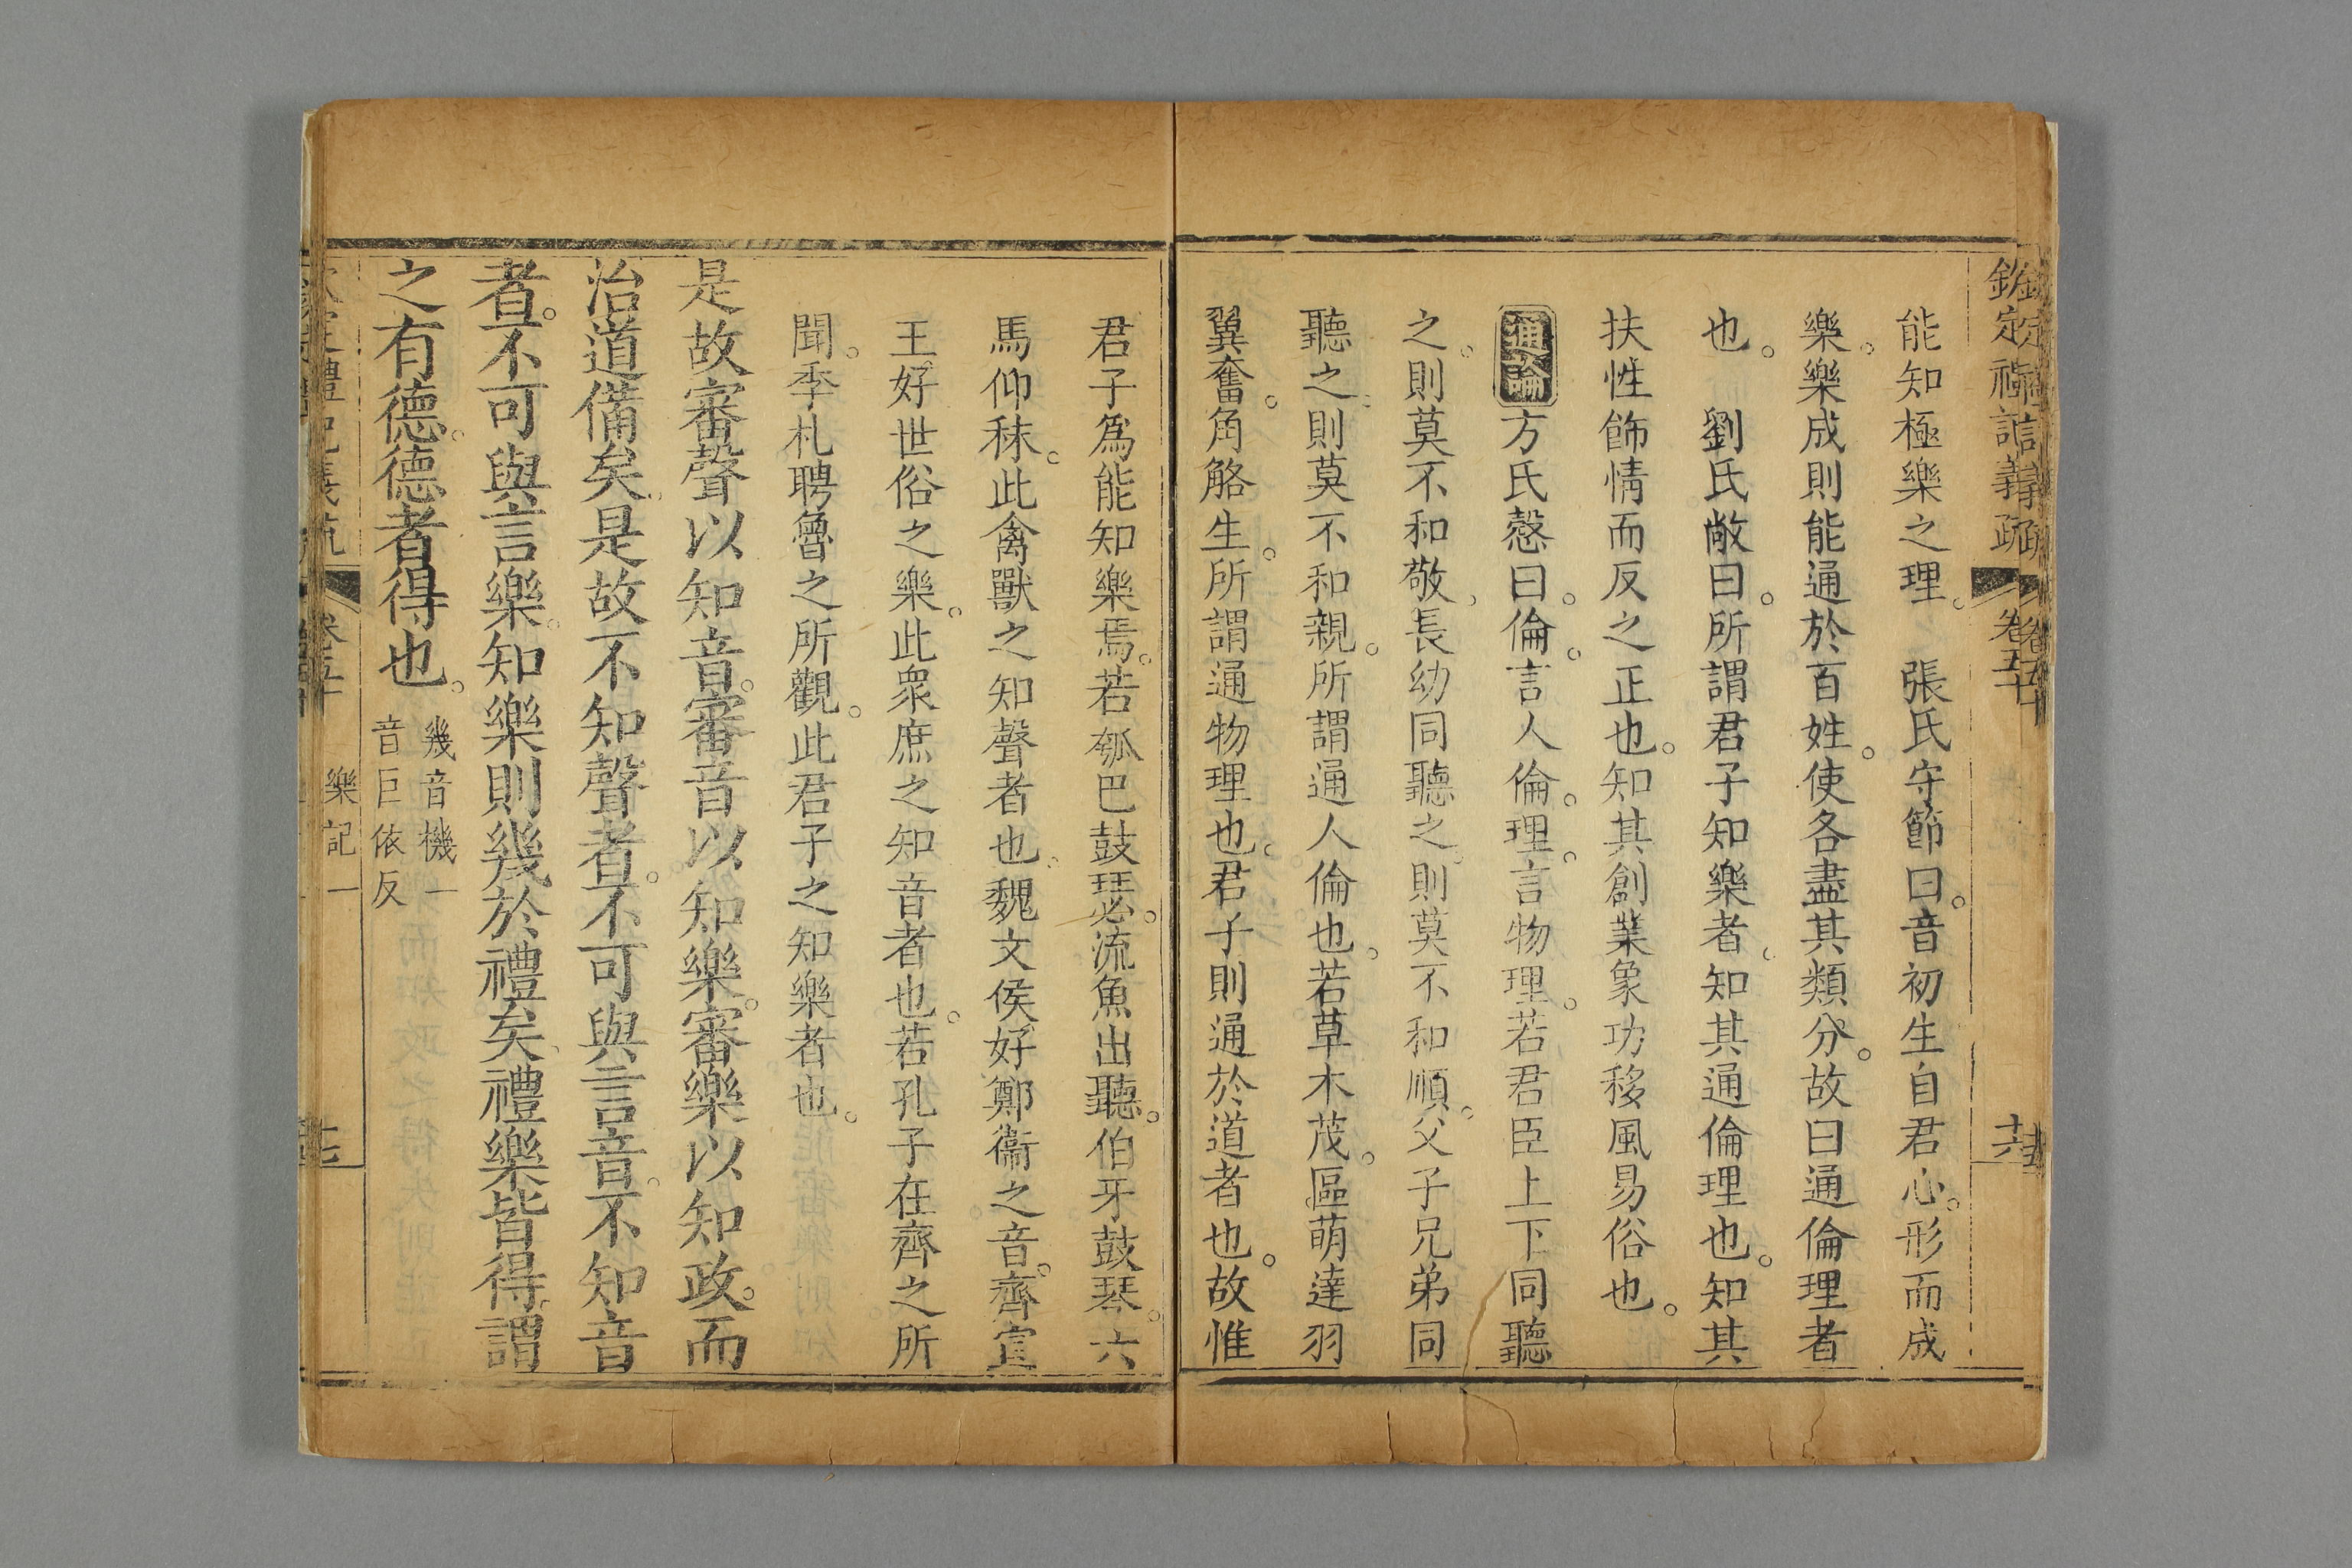 能知極樂之理。　張氏守節曰。音初生自君心。形而成
樂。樂成則能通於百姓。使各盡其類分。故曰通倫理者
也。　劉氏敞曰。所謂君子知樂者。知其通倫理也。知其
扶性飾情而反之正也。知其創業象功移風易俗也。
通論方氏慤曰。倫。言人倫。理。言物理。若君臣上下同聽
之。則莫不和敬。長幼同聽之。則莫不和順。父子兄弟同
聽之。則莫不和親。所謂通人倫也。若草木茂。區萌達。羽
翼奮。角觡生。所謂通物理也。君子則通於道者也。故惟
君子為能知樂焉。若瓠巴鼓瑟。流魚出聽。伯牙鼓琴。六
馬仰秣。此禽獸之知聲者也。魏文侯好鄭衞之音。齊宣
王好世俗之樂。此眾庶之知音者也。若孔子在齊之所
聞。季札聘魯之所觀。此君子之知樂者也。
是故審聲以知音。審音以知樂。審樂以知政。而
治道備矣。是故不知聲者。不可與言音。不知音
者。不可與言樂。知樂則幾於禮矣。禮樂皆得。謂
之有德。德者得也。
幾音機一
音巨依反
卷五十
樂記一
十七